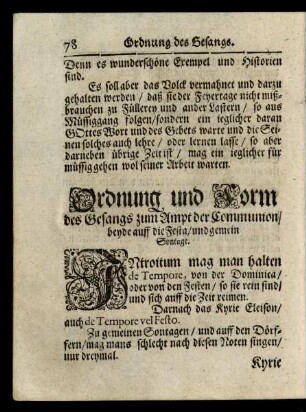 78 Ordnung des Gesangs.
Denn es wunderschöne Exempel und Historien
sind.
Es soll aber das Volck vermahnet und darzu
gehalten werden / daß sie der Feyertage nicht miß-
brauchen zu Fülleren und ander Lastern / so aus
Müssiggang folgen / sondern ein ieglicher daran
GOttes Wort und des Gebets warte und die Sei-
nen solches auch lehre / oder lernen lasse / so aber
darneben übrige Zeit ist / mag ein ieglicher für
müssig gehen wol seiner Arbeit warten.
Ordnung und Form
des Gesangs zum Ampt der Communion /
beyde auff die Festa / und gemein
Sontage.
INtroitum mag man halten
de Tempore, von der Dominica /
oder von den Festen / so sie rein sind /
und sich auff die Zeit reimen.
Darnach das Kyrie Eleison /
auch de Tempore vel Festo.
Zu gemeinen Sontagen / und auff den Dörf-
fern / mag mans schlecht nach diesen Noten singen /
nur dreymal.
Kyrie